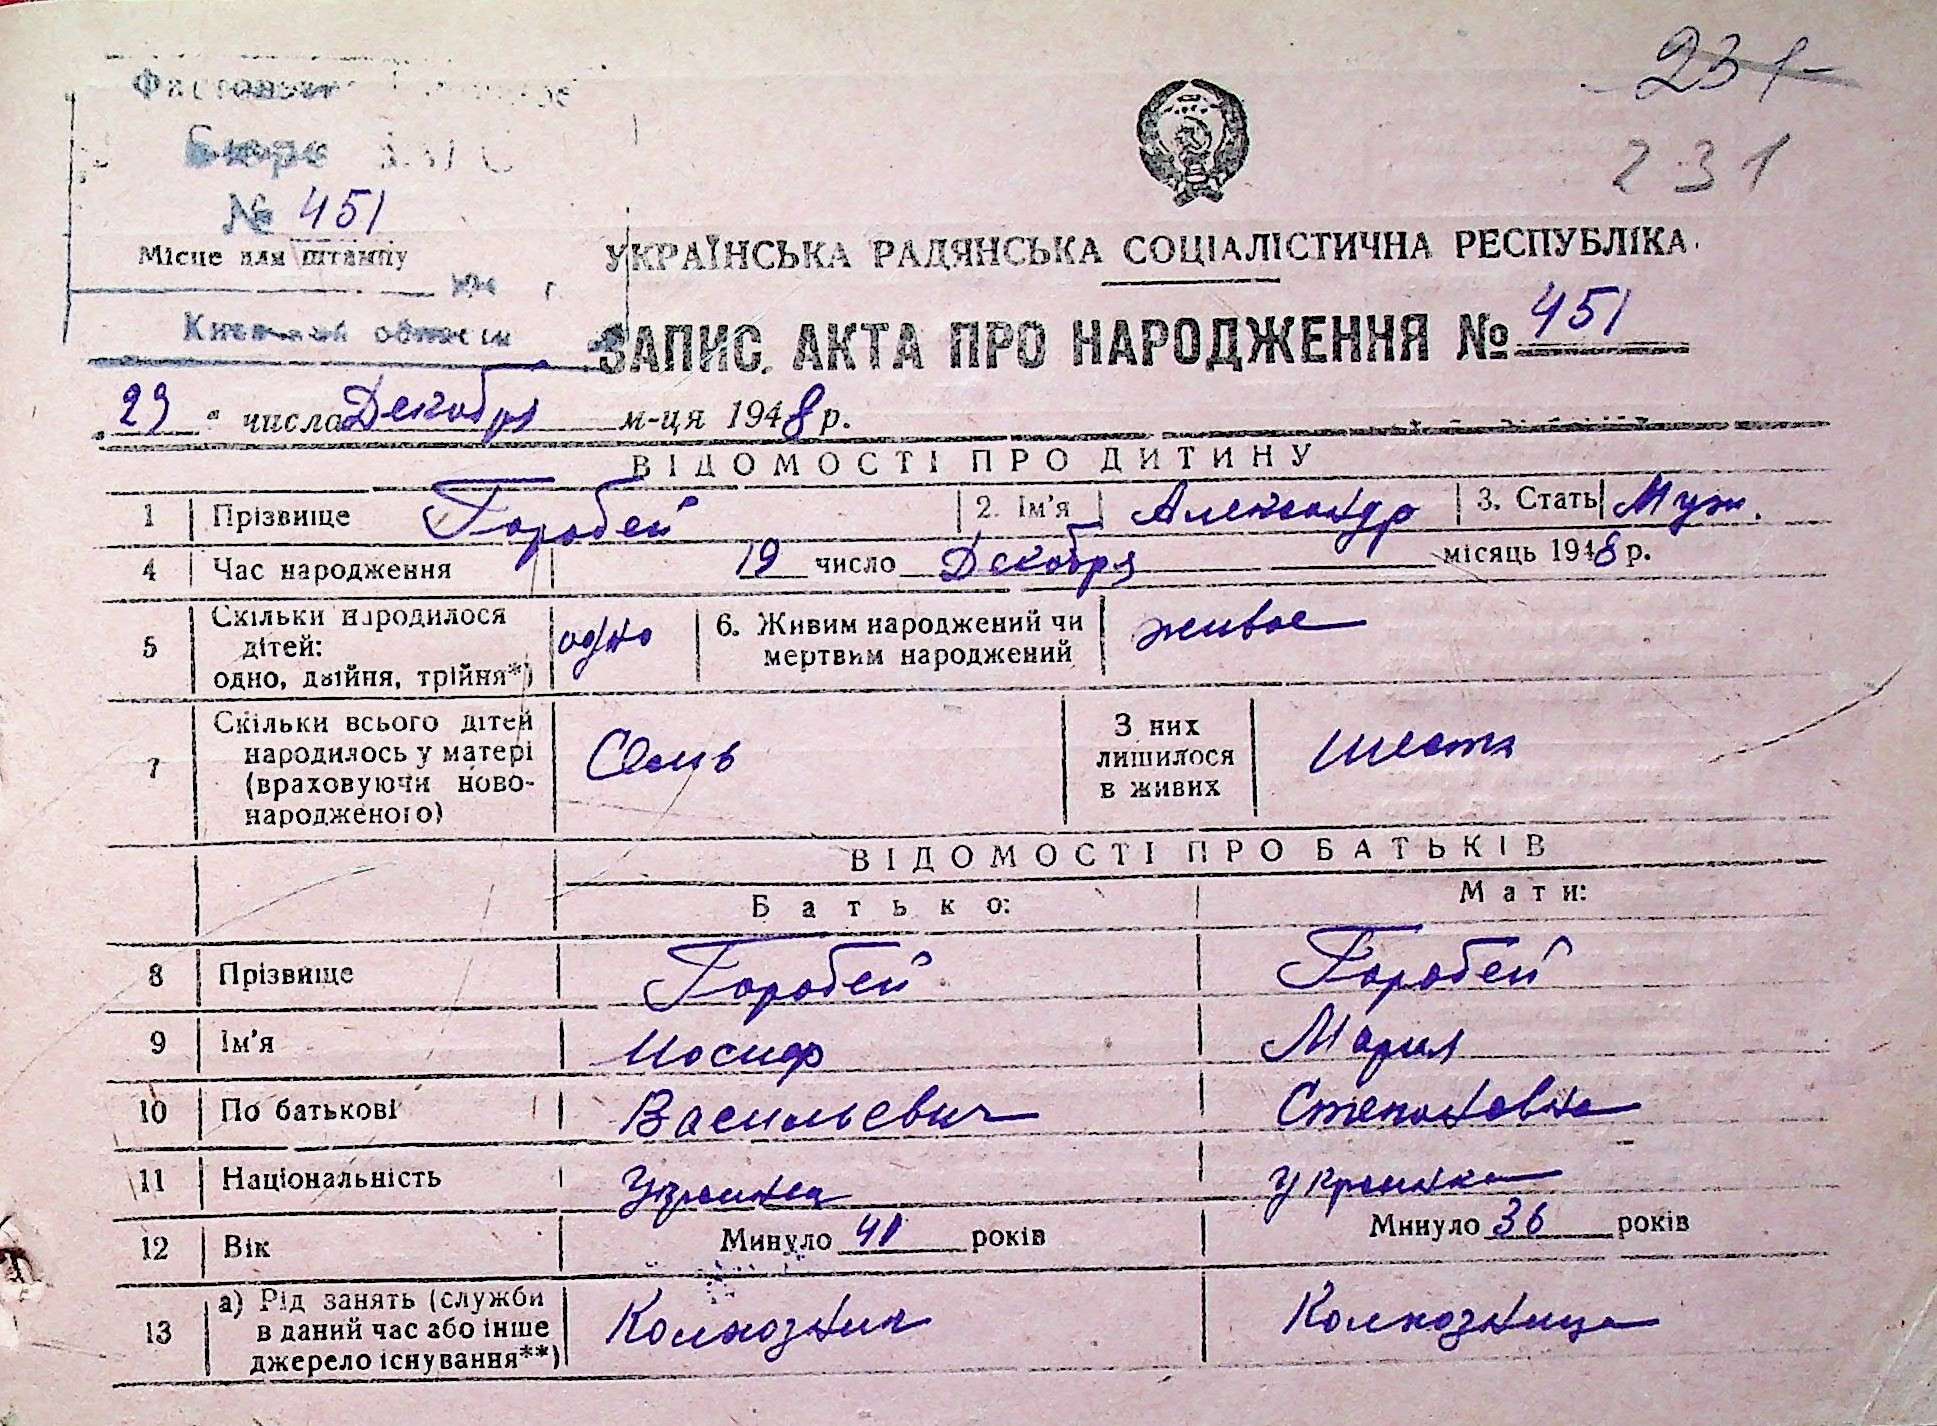 231
231
Бюро
№ 451
Місце для штампу
Киевской области
УКРАЇНСЬКА РАДЯНСЬКА СОЦІАЛІСТИЧНА РЕСПУБЛІКА
ЗАПИС АКТА ПРО НАРОДЖЕННЯ № 451
29 " числа Декабря м-ця 1948 р.
ВІДОМОСТІ ПРО ДИТИНУ
1 Прізвище Горобей 2. Ім'я Александр 3. Стать Муж.
4 Час народження 19 число Декабря місяць 1948 р.
5 Скільки народилося
дітей:
одно, двійня, трійня*) одно 6. Живим народжений чи
мертвим народжений живое
7 Скільки всього дітей
народилось у матері
(враховуючи ново-
народженого) Семь З них
лишилося
в живих шесть
ВІДОМОСТІ ПРО БАТЬКІВ
Батько: Мати:
8 Прізвище Горобей Горобей
9 Ім'я Иосиф Мария
10 По батькові Васильевич Степановна
11 Національність украинец украинка
12 Вік Минуло 41 років Минуло 36 років
13 а) Рід занять (служби
в даний час або інше
джерело існування**) Колхозник Колхозница